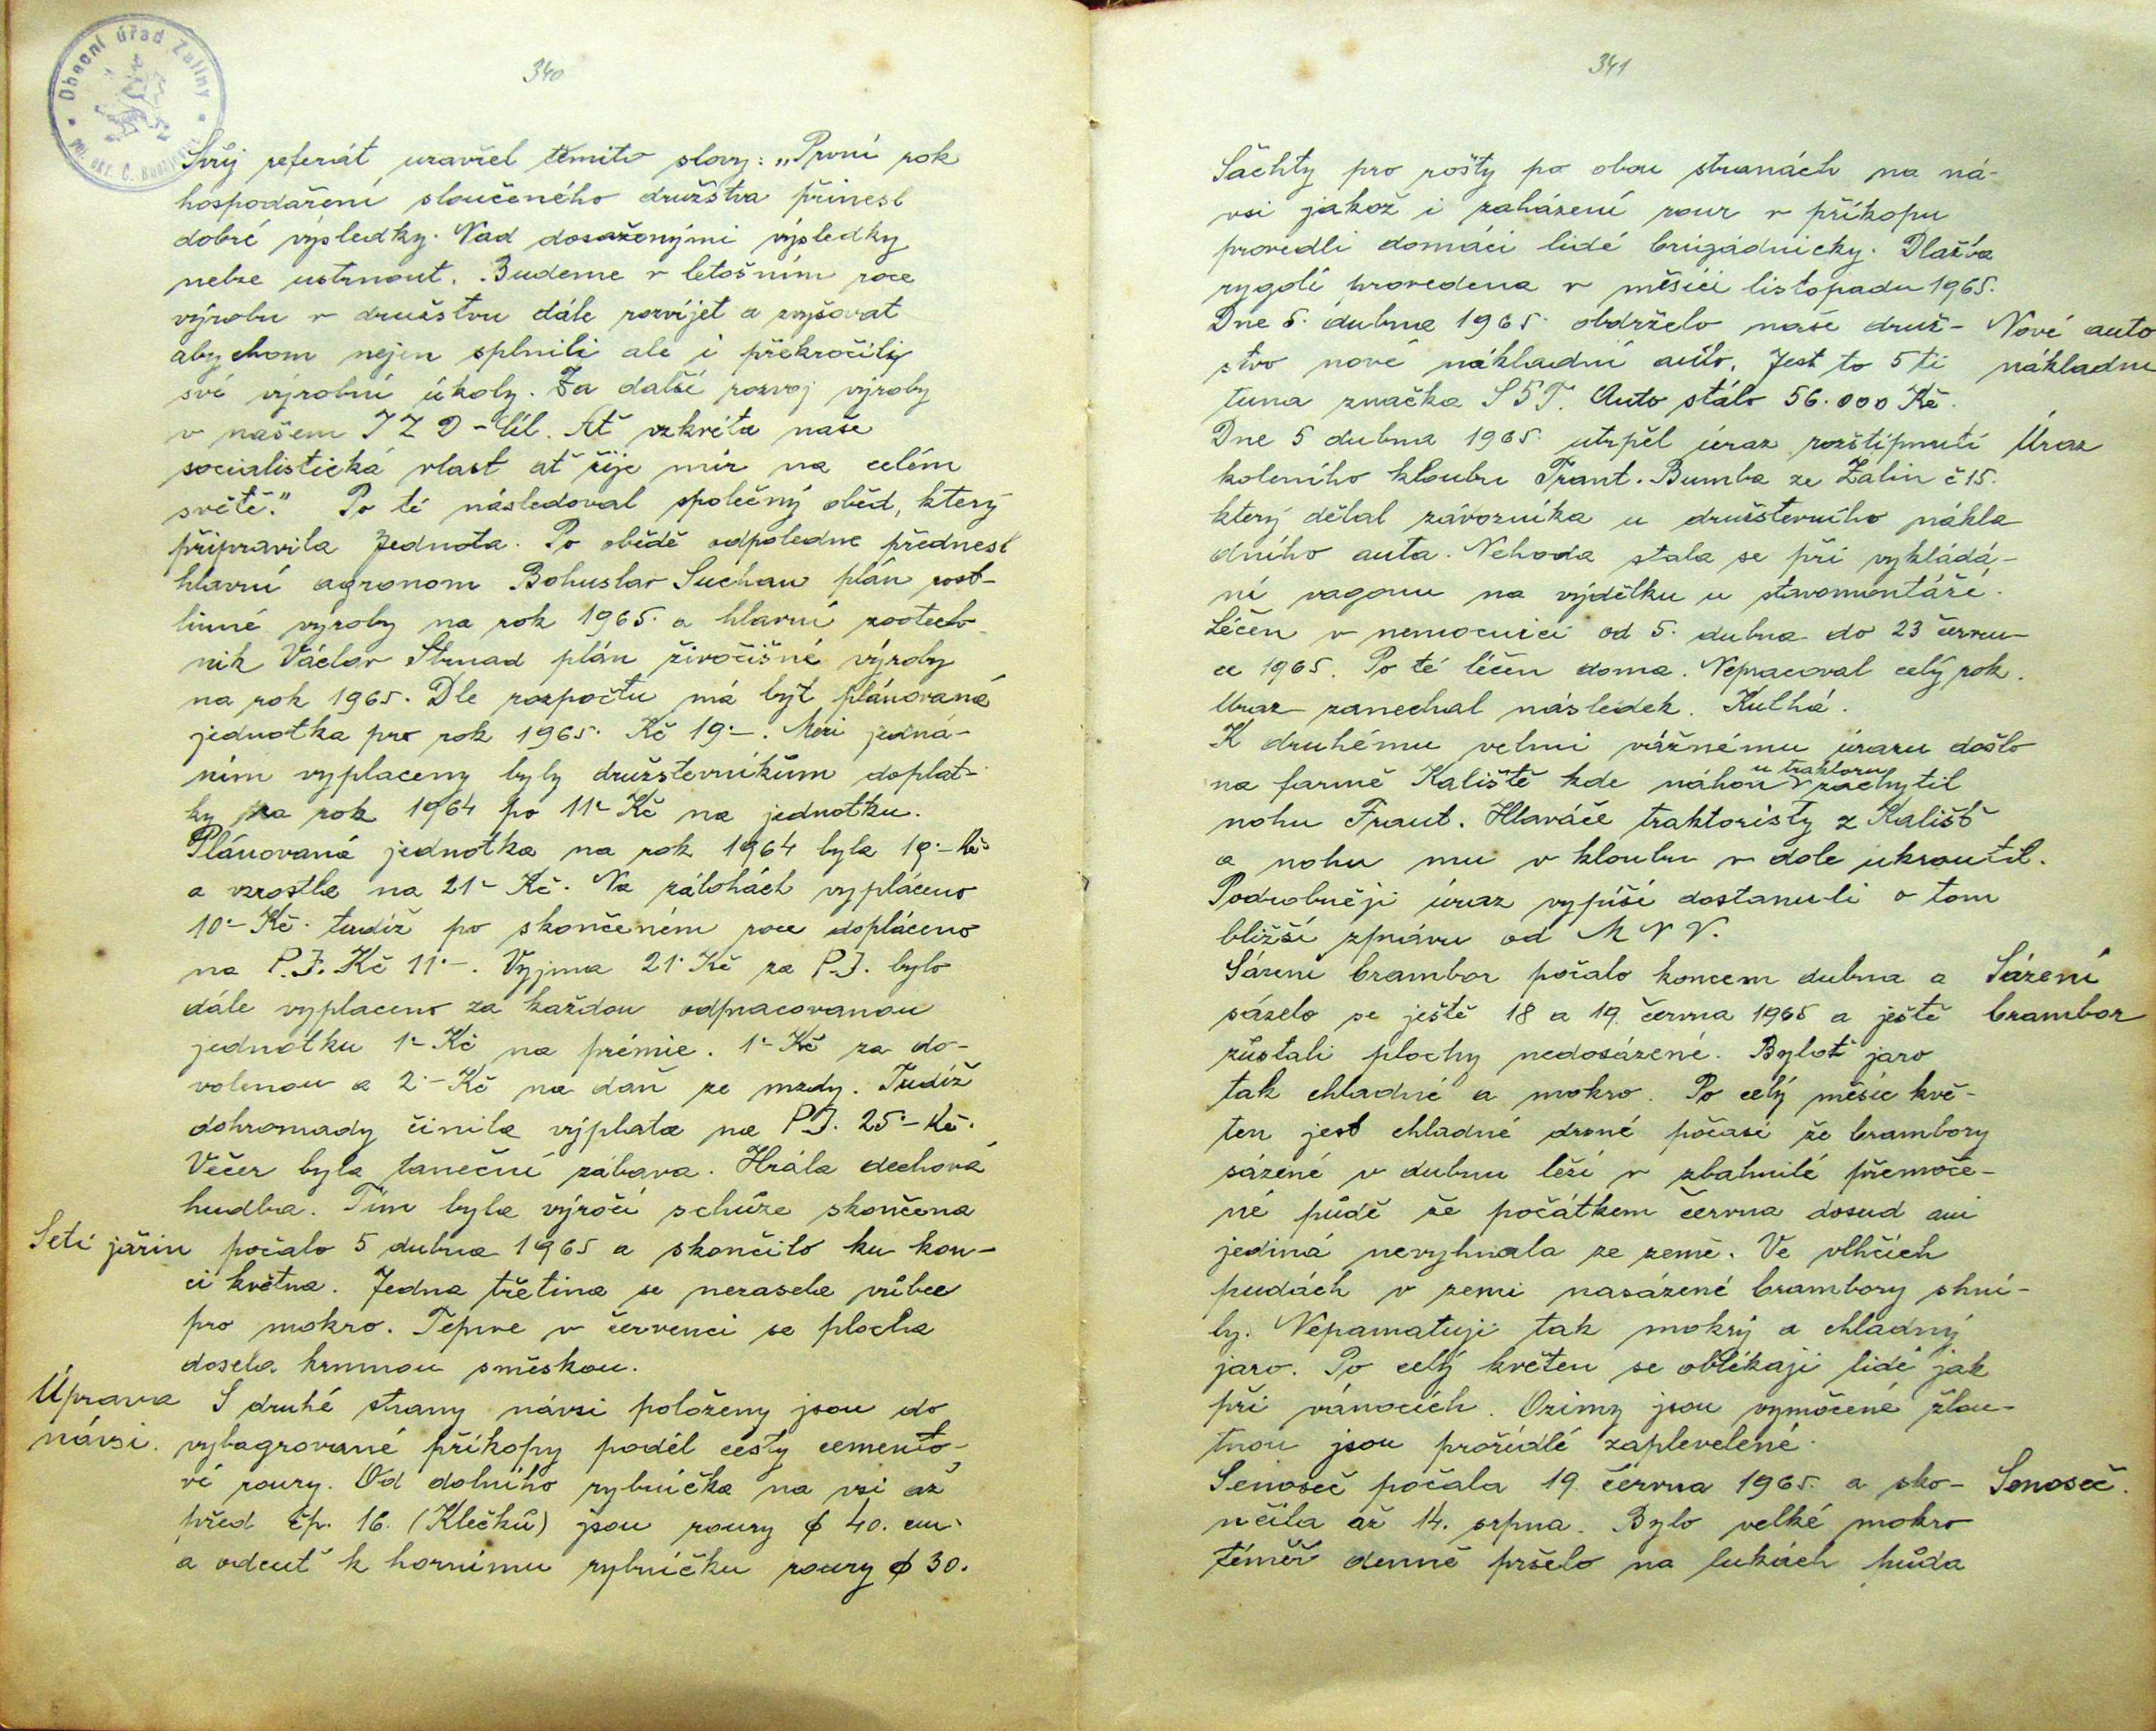 Obecní úřad Zaliny
340
Svůj referát uzavřel těmito slovy: „První rok
hospodaření sloučeného družstva přinesl
dobré výsledky. Nad dosaženými výsledky
nelze ustrnout. Budeme v letošním roce
výrobu v družstvu dále rozvíjet a zvyšovat
abychom nejen splnili ale i překročili
své výrobní úkoly. Za další rozvoj výroby
v našem JZD - Cíl. Ať vzkvétá naše
socialistická vlast ať žije mír na celém
světě." Po té následoval společný oběd, který
připravila Jednota. Po obědě odpoledne přednesl
hlavní agronom Bohuslav Suchan plán rost-
linné výroby na rok 1965. a hlavní zootech
nik Václav Strnad plán živočišné výroby
na rok 1965. Dle rozpočtu má být plánovaná
jednotka pro rok 1965. Kč 19·-. Mezi jedná-
ním vyplaceny byly družstevníkům doplat-
ky za rok 1964 po 11·- Kč na jednotku.
Plánovaná jednotka na rok 1964 byla 19·- Kčs
a vzrostla na 21·- Kč. Na zálohách vypláceno
10·- Kč. tudíž po skončeném roce dopláceno
na P.J. Kč 11·-. Vyjma 21· Kč za P.J. bylo
dále vyplaceno za každou odpracovanou
jednotku 1·- Kč na prémie. 1·- Kč za do-
volenou a 2·- Kč na daň ze mzdy. Tudíž
dohromady činila výplata na P.J. 25·- Kč.
Večer byla taneční zábava. Hrála dechová
hudba. Tím byla výročí schůze skončena
Setí jařin počalo 5 dubna 1965 a skončilo ku kon-
ci května. Jedna třetina se nezasela vůbec
pro mokro. Teprve v červenci se plocha
dosela krmnou směskou.
Úprava S druhé strany návsi položeny jsou do
návsi. vybagrované příkopy podél cesty cemento-
vé roury. Od dolního rybníčka na vsi až
před čp. 16. (Klečků) jsou roury ϕ 40. cm.
a odtuď k hornímu rybníčku roury ϕ 30.
341
Šachty pro rošty po obou stranách na ná-
vsi jakož i zaházení rour v příkopu
provedli domácí lidé brigádnicky. Dlažba
rygolí provedena v měsíci listopadu 1965.
Dne 5. dubna 1965. obdrželo naše druž- Nové auto
stvo nové nákladní auto. Jest to 5ti nákladní
tuna značka S5T. Auto stálo 56.000 Kč.
Dne 5 dubna 1965. utrpěl úraz rozštípnutí Úraz
koleního kloubu Frant. Bumba ze Zalin č 15.
který dělal závozníka u družstevního nákla
dního auta. Nehoda stala se při vykládá-
ní vagonu na výdělku u stavomontáže.
Léčen v nemocnici od 5. dubna do 23 červen-
ce 1965. Po té léčen doma. Nepracoval celý rok.
Úraz zanechal následek. Kulhá.
K druhému velmi vážnému úrazu došlo
na farmě Kaliště kde náhon u traktoru zachytil
nohu Frant. Hlaváče traktoristy z Kališť
a nohu mu v kloubu v dole ukroutil.
Podrobněji úraz vypíši dostanu-li o tom
bližší zprávu od M N V.
Sázení brambor počalo koncem dubna a Sázení
sázelo se ještě 18 a 19. června 1965 a ještě brambor
zůstali plochy nedosázené. Byloť jaro
tak chladné a mokro. Po celý měsíc kvě-
ten jest chladné drsné počasí že brambory
sázené v dubnu leží v zbahnilé přemoče-
né půdě že počátkem června dosud ani
jediná nevyhnala ze země. Ve vlhčích
pudách v zemi nasázené brambory shni-
ly. Nepamatuji tak mokrý a chladný
jaro. Po celý květen se oblékají lidé jak
při vánocích. Ozimy jsou vymočené žlou-
tnou jsou prořídlé zaplevelené.
Senoseč počala 19. června 1965. a sko- Senoseč.
nčila až 14. srpna. Bylo velké mokro
téměř denně pršelo na lukách půda